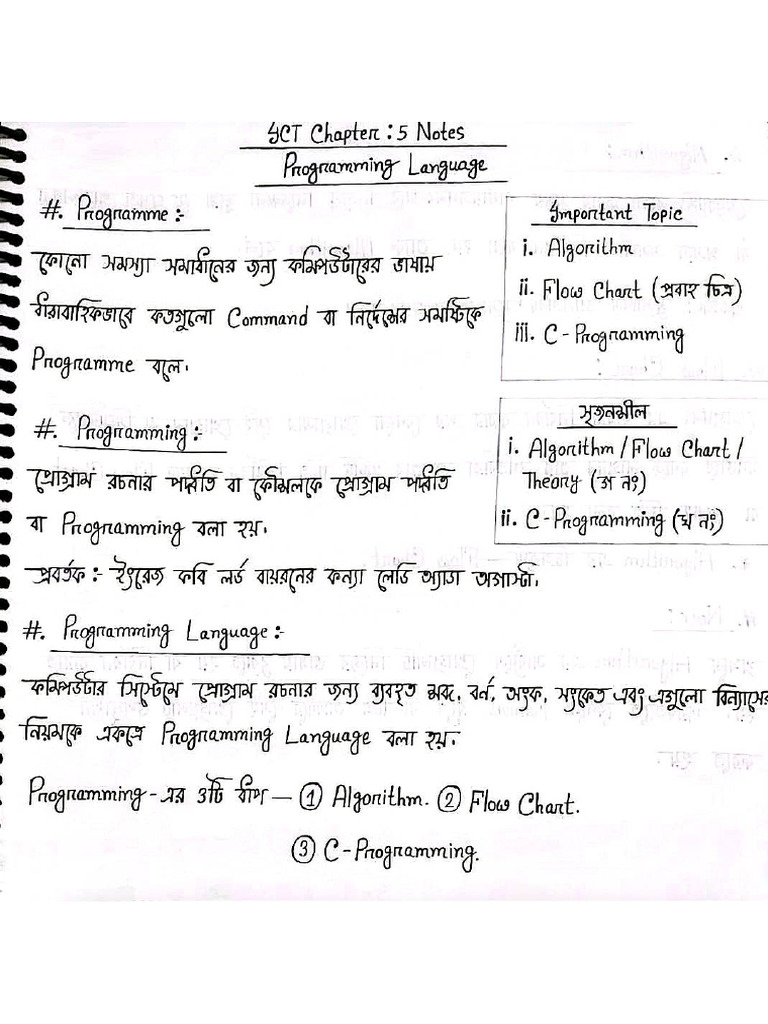 ICT Chapter : 5 Notes
Programming Language
#. Programme :-
কোনো সমস্যা সমাধানের জন্য কম্পিউটারের ভাষায়
ধারাবাহিকভাবে কতগুলো Command বা নির্দেশের সমষ্টিকে
Programme বলে।
Important Topic
i. Algorithm
ii. Flow Chart (প্রবাহ চিত্র)
iii. C-Programming
#. Programming :-
প্রোগ্রাম রচনার পদ্ধতি বা কৌশলকে প্রোগ্রাম পদ্ধতি
বা Programming বলা হয়।
প্রবর্তক :- ইংরেজ কবি লর্ড বায়রনের কন্যা লেডি অ্যাডা অগাস্টা।
সৃজনশীল
i. Algorithm / Flow Chart /
Theory (গ নং)
ii. C-Programming (ঘ নং)
#. Programming Language :-
কম্পিউটার সিস্টেমে প্রোগ্রাম রচনার জন্য ব্যবহৃত শব্দ, বর্ণ, অংক, সংকেত এবং এগুলো বিন্যাসের
নিয়মকে একত্রে Programming Language বলা হয়।
Programming-এর ৩টি ধাপ — ① Algorithm. ② Flow Chart.
③ C-Programming.